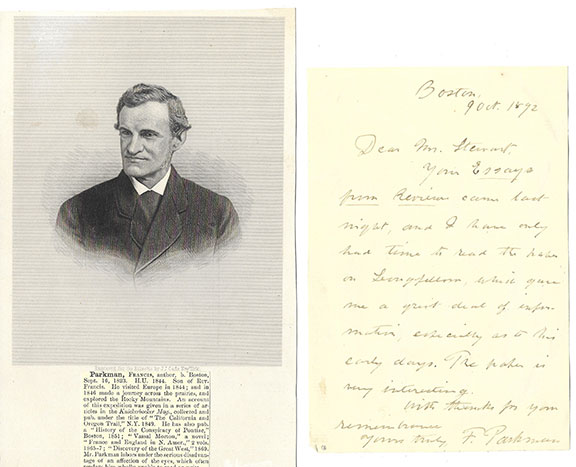 Parkman, FRANCIS, author, b. Boston,
Sept. 16, 1823. H.U. 1844. Son of Rev.
Francis. He visited Europe in 1844; and in
1846 made a journey across the prairies, and
explored the Rocky Mountains. An account
of this expedition was given in a series of ar-
ticles in the Knickerbocker Mag., collected and
pub. under the title of "The California and
Oregon Trail," N.Y. 1849. He has also pub.
a "History of the Conspiracy of Pontiac,"
Boston, 1851; "Vassal Morton," a novel;
"France and England in N. Amer.," 2 vols.
1865-7; "Discovery of the Great West," 1869.
Mr. Parkman labors under the serious disadvan-
tage of an affection of the eyes, which often
Boston,
9 Oct. 1892
Dear Mr. Stewart,
Your Essays
from Reviews came last
night, and I have only
had time to read the paper
on Longfellow, which gave
me a great deal of infor-
mation, especially as to his
early days. The paper is
very interesting.
With thanks for your
remembrance
Yours truly, F. Parkman